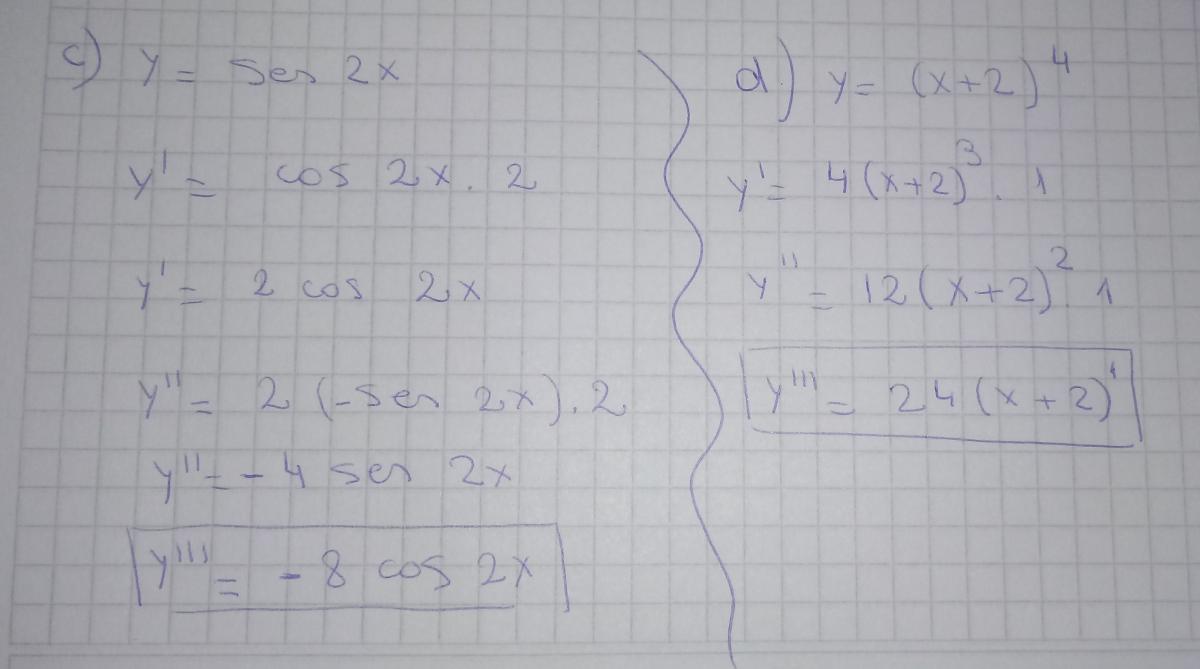 c) y = sen 2x
y' = cos 2x . 2
y' = 2 cos 2x
y'' = 2 (-sen 2x) . 2
y'' = -4 sen 2x
y''' = -8 cos 2x
d) y = (x+2)⁴
y' = 4(x+2)³ . 1
y'' = 12(x+2)² . 1
y''' = 24(x+2)¹